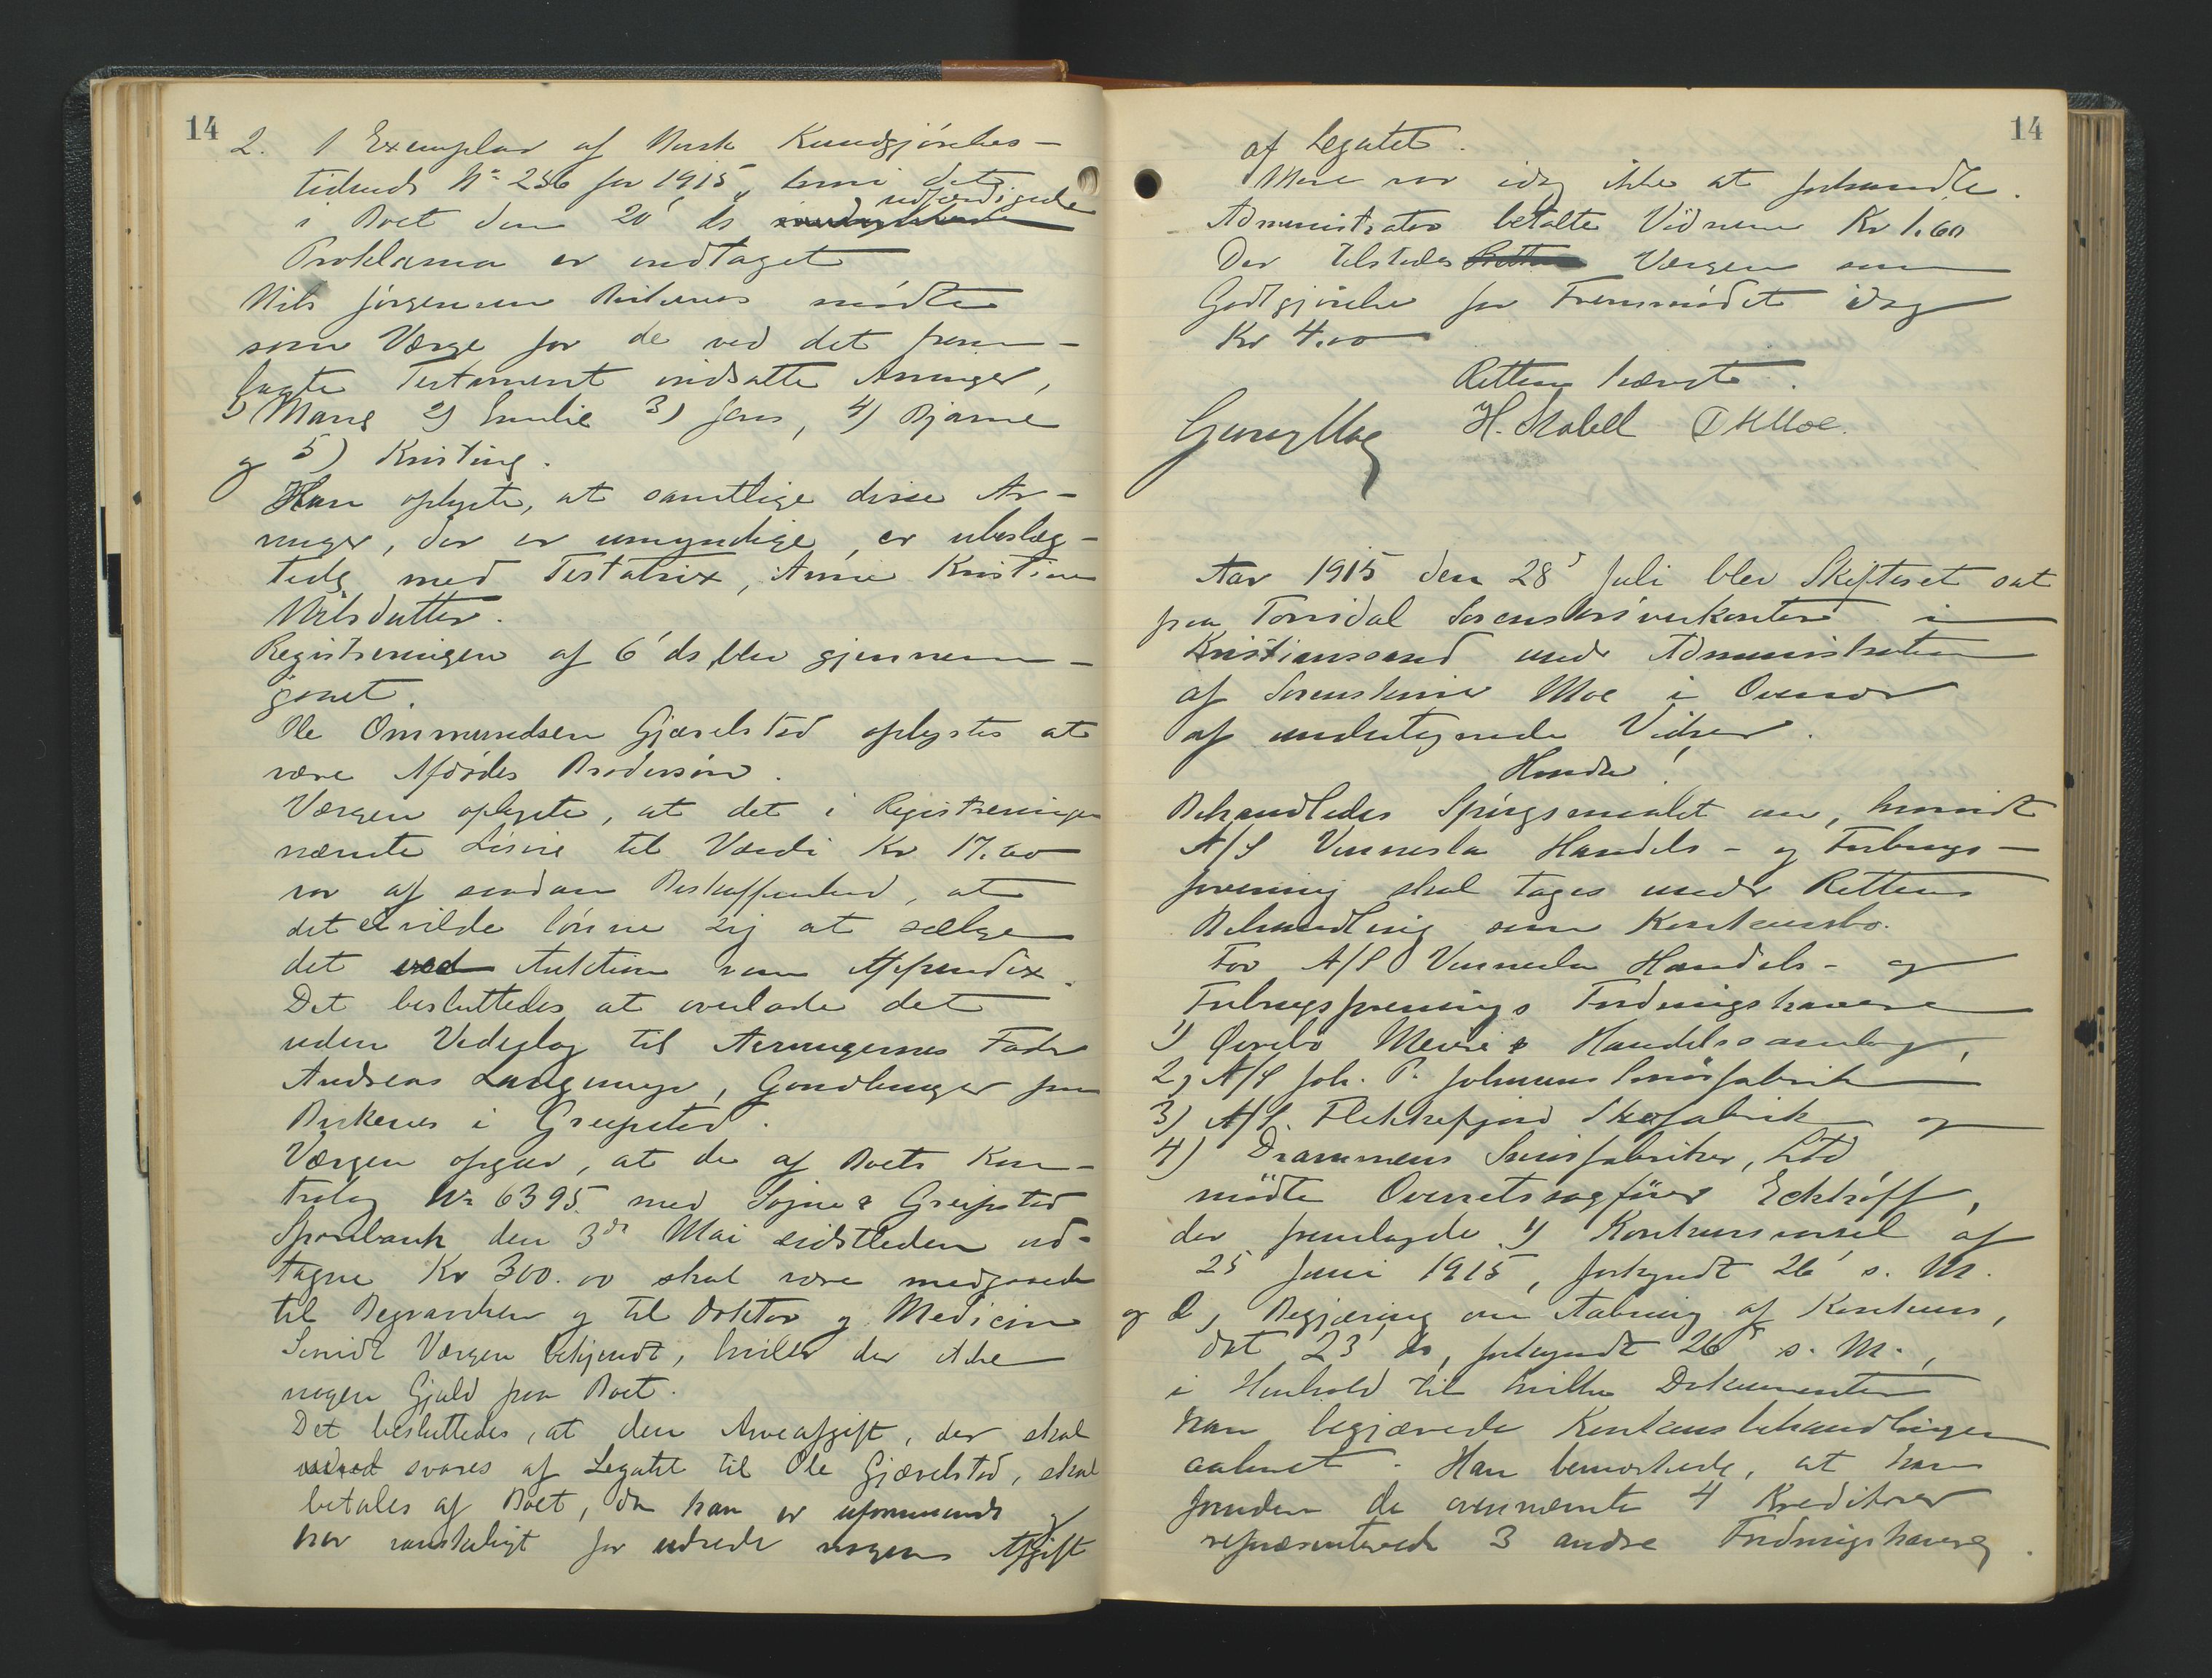 14
2. 1 Exemplar af Norsk Kundgjørelses-
tidende No 256 for 1915, hvori det
i Boet den 20' ds udfærdigede
Proklama er indtaget
Nils Jørgensen Birkenes mødte
som Værge for de ved det frem-
lagte Testament indsatte Arvinger,
1) Marie 2) Emilie 3) Jens, 4) Bjarne
og 5) Kristine.
Han oplyste, at samtlige disse Ar-
vinger, der er umyndige, er ubeslæg-
tede med Testatrix, Anne Kristine
Nilsdatter.
Registreringen af 6' ds. blev gjennem-
gaaet.
Ole Ommundsen Gjærelstad oplystes at
være Afdødes Brodersøn.
Værgen oplyste, at det i Registreringen
nævnte Løsøre til Værdi Kr 17.00
var af saadan Beskaffenhed, at
det ei vilde lønne sig at sælge
det ved Auktion som Appendix.
Det besluttedes at overlade det
uden Vederlag til Arvingernes Fader
Andreas Langemyr, Gaardbruger paa
Birkenes i Greipstad.
Værgen opgav, at de af Boets Kon-
trabog No 6395 med Søgne & Greipstad
Sparebank den 3de Mai sidstleden ud-
tagne Kr 300.00 skal være medgaaede
til Begravelsen og til Doktor og Medicin
Saavidt Værgen bekjendt, hviler der ikke
nogen Gjæld paa Boet.
Det besluttedes, at den Arveafgift, der skal
svares af Legatet til Ole Gjærelstad, skal
betales af Boet, da han er uformuende og
har vanskeligt for udrede nogen Afgift
14
af Legatet.
Mere var idag ikke at forhandle.
Administrator betalte Vidnerne Kr 1.60
Der tilstodes Værgen som
Godtgjørelse for Fremmødet idag
Kr 4.00
Retten hævet.
Georg Moe H. Skabell O K Moe.
Aar 1915 den 28' Juli blev Skifteret sat
paa Torridal Sorenskriverkontor i
Kristianssand under Administration
af Sorenskriver Moe i Overvær
af undertegnede Vidner.
Hvorda!
Behandledes Spørgsmaalet om, hvorvidt
A/S Vennesla Handels- og Forbrugs-
forening skal tages under Rettens
Behandling som Konkursbo.
For A/S Vennesla Handels- og
Forbrugsforenings Fordringshavere
1) Øvrebø Meieri & Handelssamlag,
2) A/S Joh. P. Johnsens Smørfabrik
3) A/S. Flekkefjord Skofabrik og
4) Drammens Smørfabriker, Ltd
mødte Overretssagfører Eckhoff,
der fremlagde 1) Konkursvarsel af
25 Juni 1915, forkyndt 26' s. M.
og 2) Begjæring om Aabning af Konkurs,
dat 23' ds, forkyndt 26' s. M.,
i Henhold til hvilke Dokumenter
han begjærede Konkursbehandlingen
aabnet. Han bemærkede, at han
foruden de ovennævnte 4 Kreditorer
repræsenterede 3 andre Fordringshavere.